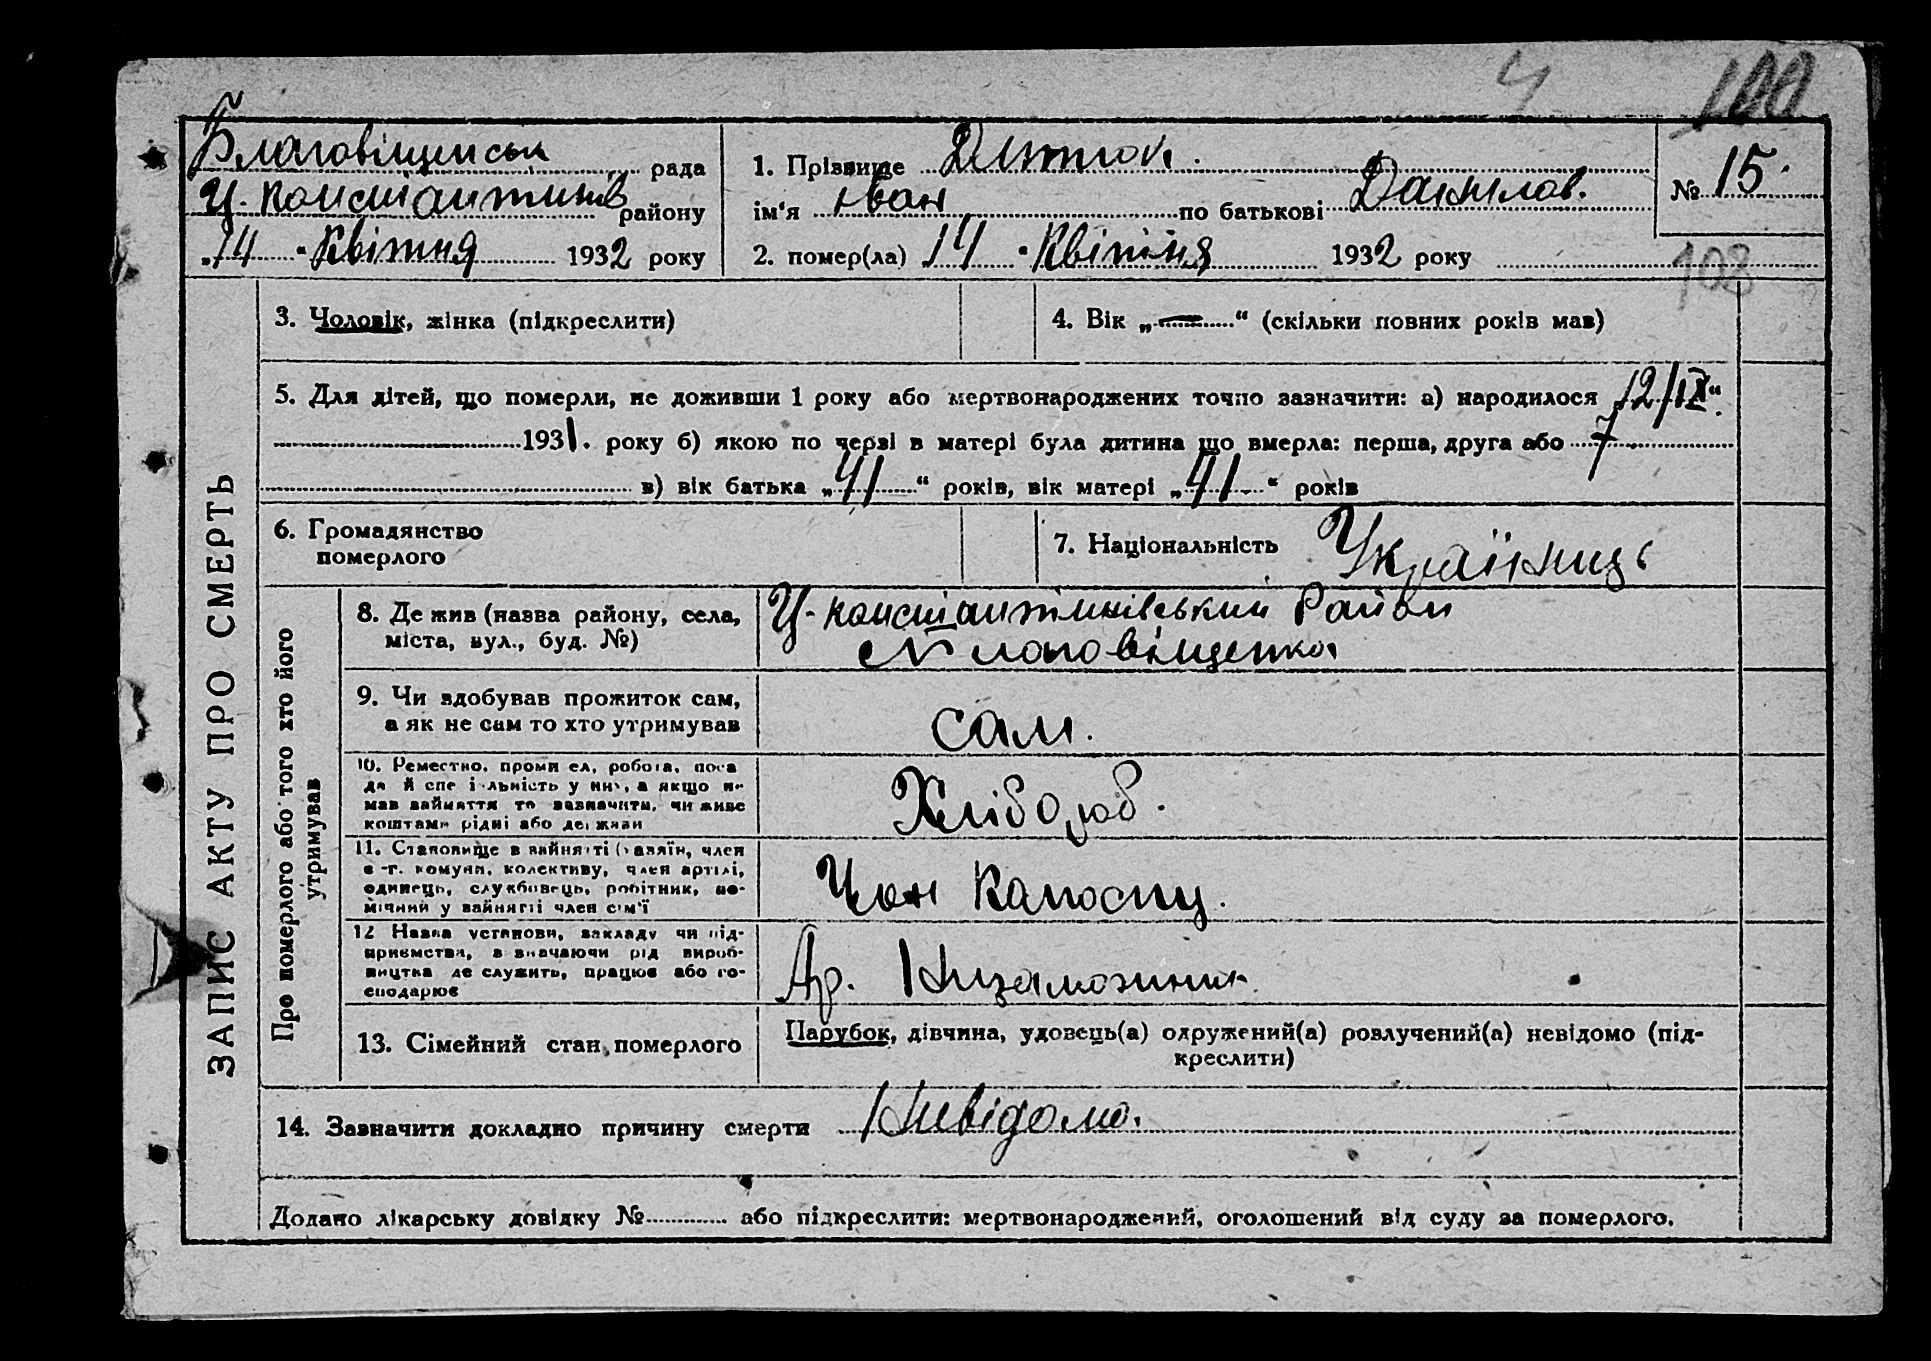 4 100
Благовіщенськ рада
Ц. Констіантинів району
"14" Квітня 1932 року
1. Прізвище
ім'я Іван по батькові Данилов.
2. помер(ла) 14 "Квітня 1932 року
№ 15.
108
ЗАПИС АКТУ ПРО СМЕРТЬ
3. Чоловік, жінка (підкреслити)
4. Вік „—“ (скільки повних років мав)
5. Для дітей, що померли, не доживши 1 року або мертвонароджених точно зазначити: а) народилося 12/IX“
1931. року б) якою по черзі в матері була дитина що вмерла: перша, друга або 7
в) вік батька „41“ років, вік матері „41“ років
6. Громадянство
померлого
7. Національність Українць
Про померлого або того хто його
утримував
8. Де жив (назва району, села,
міста, вул., буд. №)
Ц-констіантинівський Район
Благовіщенка
9. Чи здобував прожиток сам,
а як не сам то хто утримував
сам.
10. Ремество, промисел, робота, поса
да й спеціяльність у них, а якщо не
мав зайняття то зазначити, чи живе
коштами рідні або держави
Хлібороб.
11. Становище в зайнятті (хазяїн, член
с.-г. комуни, колективу, член артілі,
одинець, службовець, робітник, по-
мічний у зайнятті член сім'ї
Член Колоспу.
12 Назва установи, закладу чи під-
приємства, зазначаючи рід вироб-
ництва де служить, працює або го-
сподарює
Ар. Незаможник
13. Сімейний стан померлого
Парубок, дівчина, удовець(а) одружений(а) розлучений(а) невідомо (під-
креслити)
14. Зазначити докладно причину смерти Невідомо.
Додано лікарську довідку № або підкреслити: мертвонароджений, оголошений від суду за померлого.